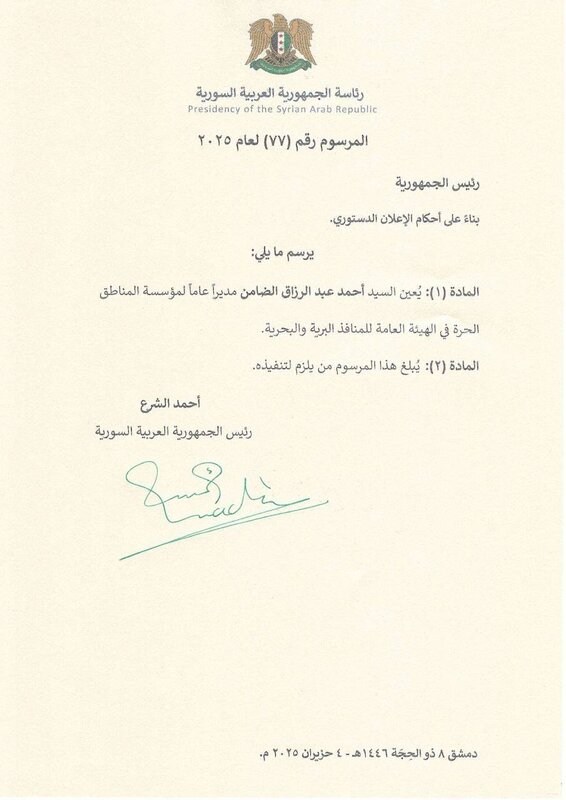 رئاسة الجمهورية العربية السورية
Presidency of the Syrian Arab Republic
المرسوم رقم (٧٧) لعام ٢٠٢٥
رئيس الجمهورية
بناءً على أحكام الإعلان الدستوري.
يرسم ما يلي:
المادة (١): يُعين السيد أحمد عبد الرزاق الضامن مديراً عاماً لمؤسسة المناطق
الحرة في الهيئة العامة للمنافذ البرية والبحرية.
المادة (٢): يُبلغ هذا المرسوم من يلزم لتنفيذه.
أحمد الشرع
رئيس الجمهورية العربية السورية
دمشق ٨ ذو الحِجَة ١٤٤٦هـ - ٤ حزيران ٢٠٢٥ م.